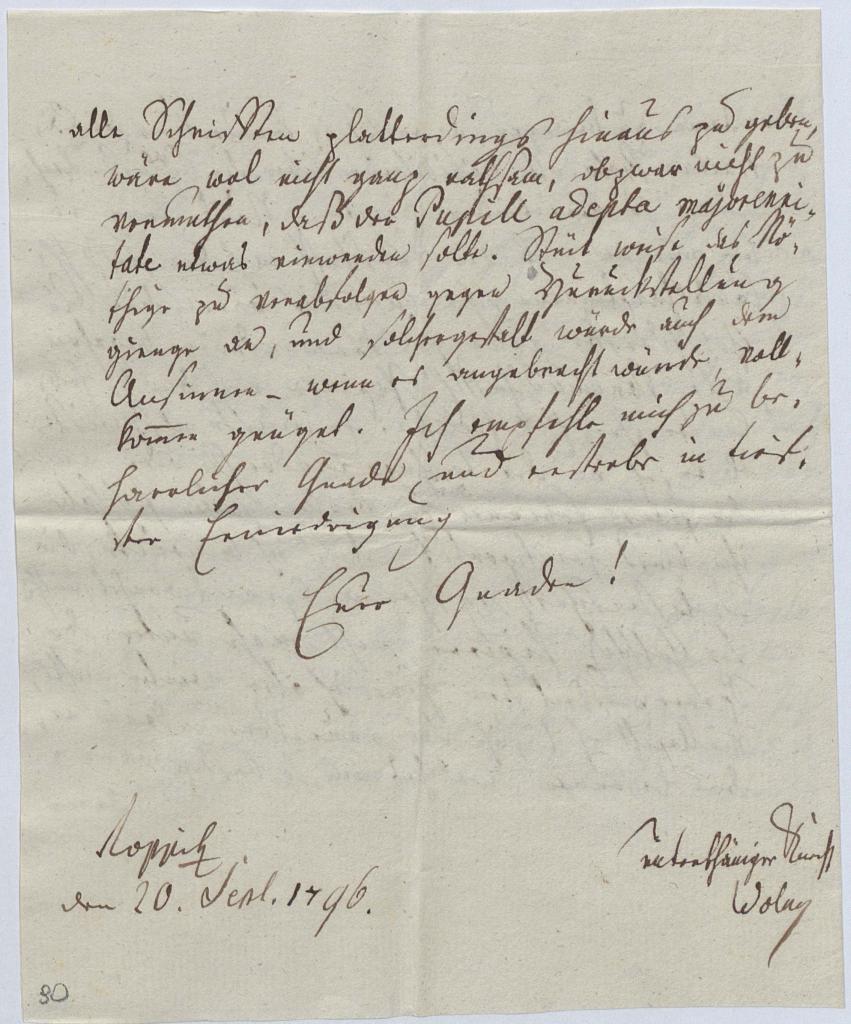 alle Schriften platterdings hinaus zu geben,
wäre wol nicht ganz rathsam, obzwar nicht zu
vermuthen, daß der Pupill adepta majorenni-
tate etwas einwenden solte. Stük weise das Nö-
thige zu verabfolgen gegen Zurückstellung
gienge an, und solchergestalt würde auch dem
Ansinnen – wenn es angebracht würde, voll-
kommen genüget. Ich empfehle mich zu be-
harrlicher Gnade und ersterbe in tief-
ster Erniedrigung
Euer Gnaden!
Roppitz
den 20. Sept. 1796.
unterthäniger Knecht
Wolny
80